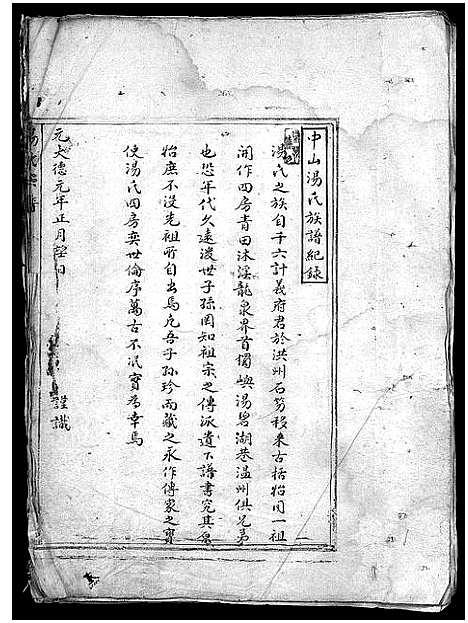 中山湯氏族譜紀錄
湯氏之族自千六計義府君於洪州石芴移來古括始同一祖
開作四房青田沐溪龍泉界首獨嶼湯碧湖巷溫州俱兄弟
也恐年代久遠後世子孫罔知祖宗之傳派遺下譜書究其泉
始庶不没先祖所自出焉凡吾子孫珍而藏之永作傳家之寶
使湯氏四房奕世倫序萬古不泯實為幸焉
元大德元年正月望日 謹識